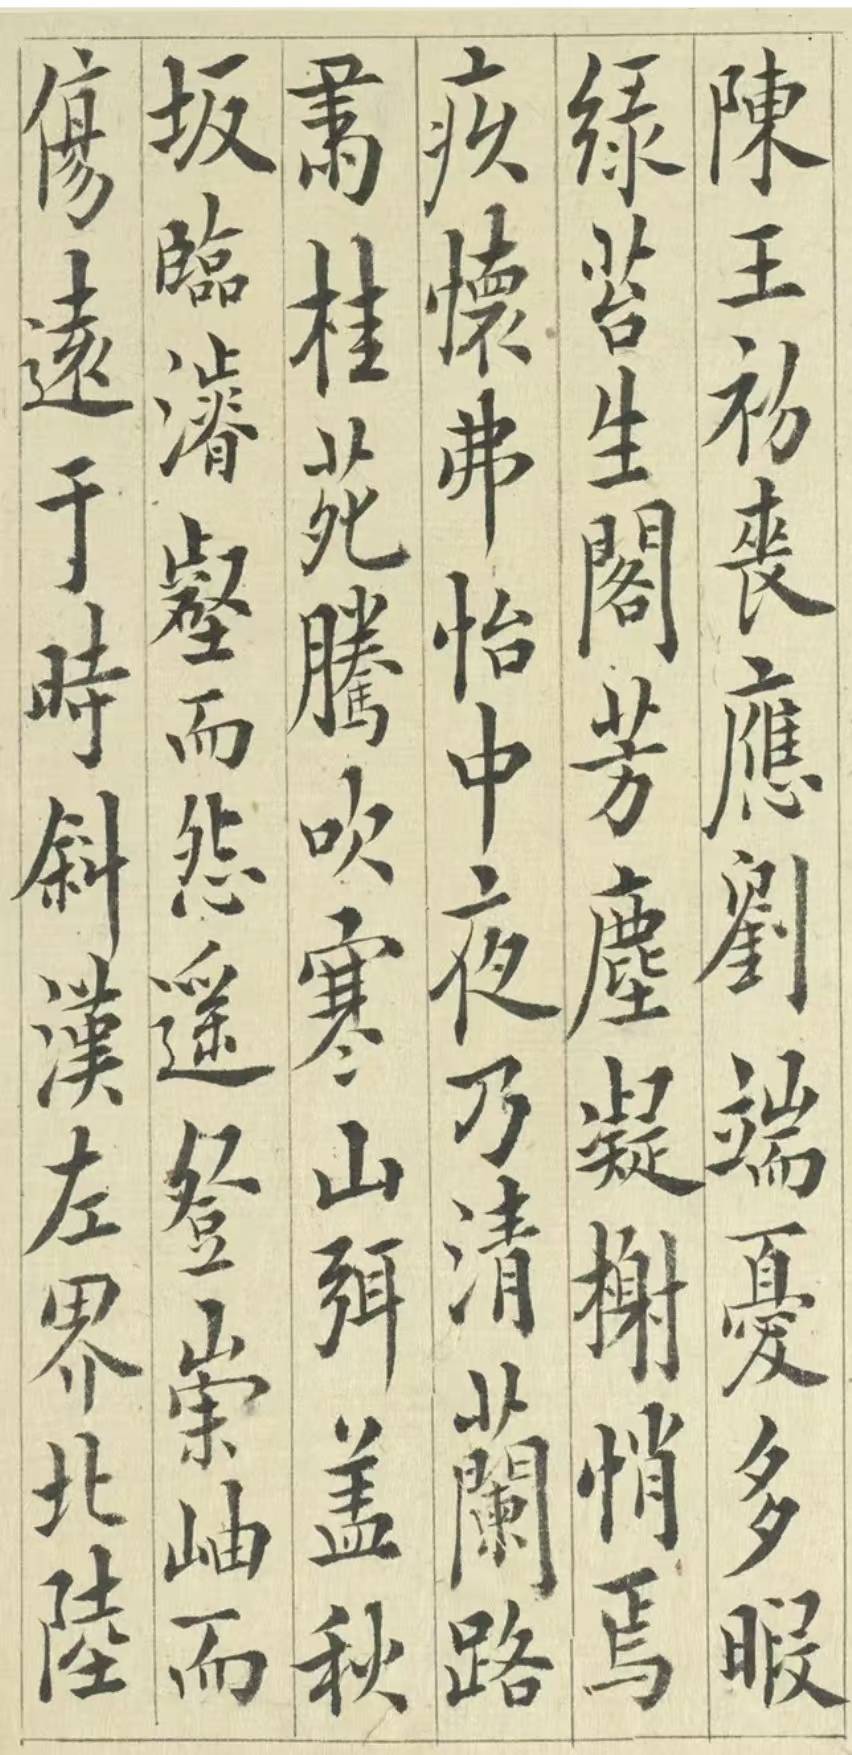 陳王初喪應劉端憂多暇
綠苔生閣芳塵凝榭悄焉
疚懷弗怡中夜乃清蘭路
肅桂苑騰吹寒山弭盖秋
坂臨濬壑而怨遥登崇岫而
傷遠于時斜漢左界北陸